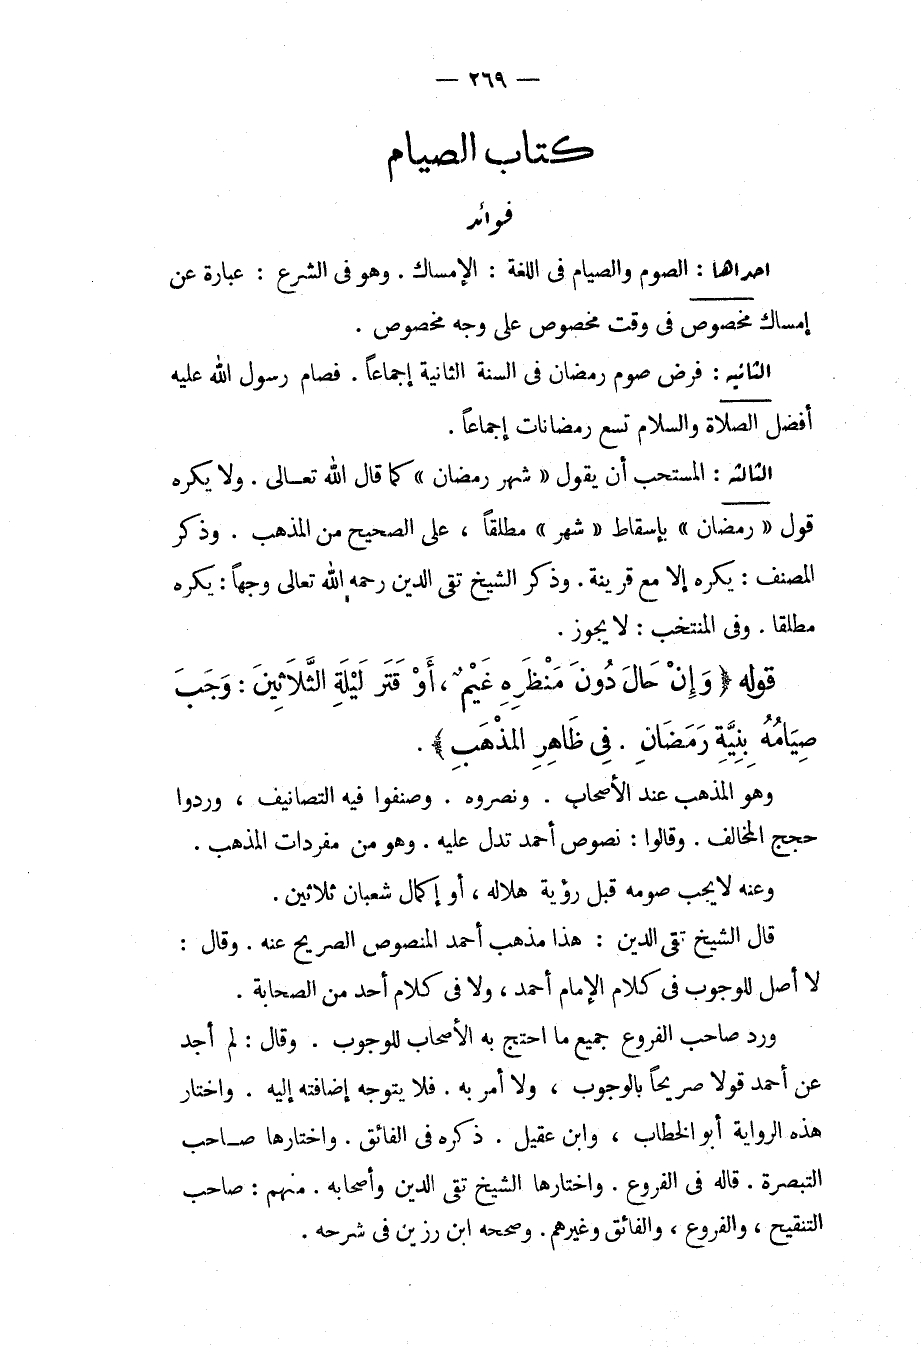 — ٢٦٩ —
كتاب الصيام
فوائد
احداها : الصوم والصيام فى اللغة : الإمساك . وهو فى الشرع : عبارة عن
إمساك مخصوص فى وقت مخصوص على وجه مخصوص .
الثانية : فرض صوم رمضان فى السنة الثانية إجماعاً . فصام رسول الله عليه
أفضل الصلاة والسلام تسع رمضانات إجماعاً .
الثالثة : المستحب أن يقول « شهر رمضان » كما قال الله تعـالى . ولا يكره
قول « رمضان » بإسقاط « شهر » مطلقاً ، على الصحيح من المذهب . وذكر
المصنف : يكره إلا مع قرينة . وذكر الشيخ تقى الدين رحمه الله تعالى وجهاً : يكره
مطلقا . وفى المنتخب : لا يجوز .
قوله ﴿ وَإِنْ حَالَ دُونَ مَنْظَرِهِ غَيْمٌ ، أَوْ قَتَر لَيْلَةِ الثَّلَاثِينَ : وَجَبَ
صِيَامُهُ بِنِيَّةِ رَمَضَانِ . فِى ظَاهِرِ المَذْهَبِ ﴾ .
وهو المذهب عند الأصحاب . ونصروه . وصنفوا فيه التصانيف ، وردوا
حجج المخالف . وقالوا : نصوص أحمد تدل عليه . وهو من مفردات المذهب .
وعنه لا يجب صومه قبل رؤية هلاله ، أو إكمال شعبان ثلاثين .
قال الشيخ تقى الدين : هذا مذهب أحمد المنصوص الصريح عنه . وقال :
لا أصل للوجوب فى كلام الإمام أحمد ، ولا فى كلام أحد من الصحابة .
ورد صاحب الفروع جميع ما احتج به الأصحاب للوجوب . وقال : لم أجد
عن أحمد قولا صريحاً بالوجوب ، ولا أمر به . فلا يتوجه إضافته إليه . واختار
هذه الرواية أبو الخطاب ، وابن عقيل . ذكره فى الفائق . واختارها صـاحب
التبصرة . قاله فى الفروع . واختارها الشيخ تقى الدين وأصحابه . منهم : صاحب
التنقيح ، والفروع ، والفائق وغيرهم . وصححه ابن رزين فى شرحه .